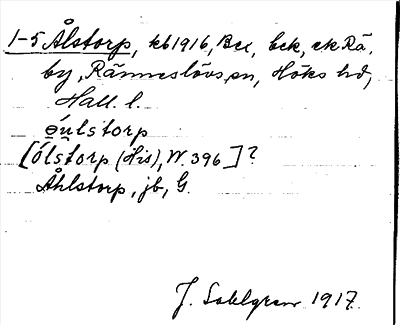 1-5 Ålstorp, kb1916, Bec, bek, ek Rä.
by, Ränneslövs sn, Höks hd,
Hall. l.
øu̯lstorp
[ólstorp (His), W. 396]?
Åhlstorp, jb, G.
J. Sahlgren 1917.